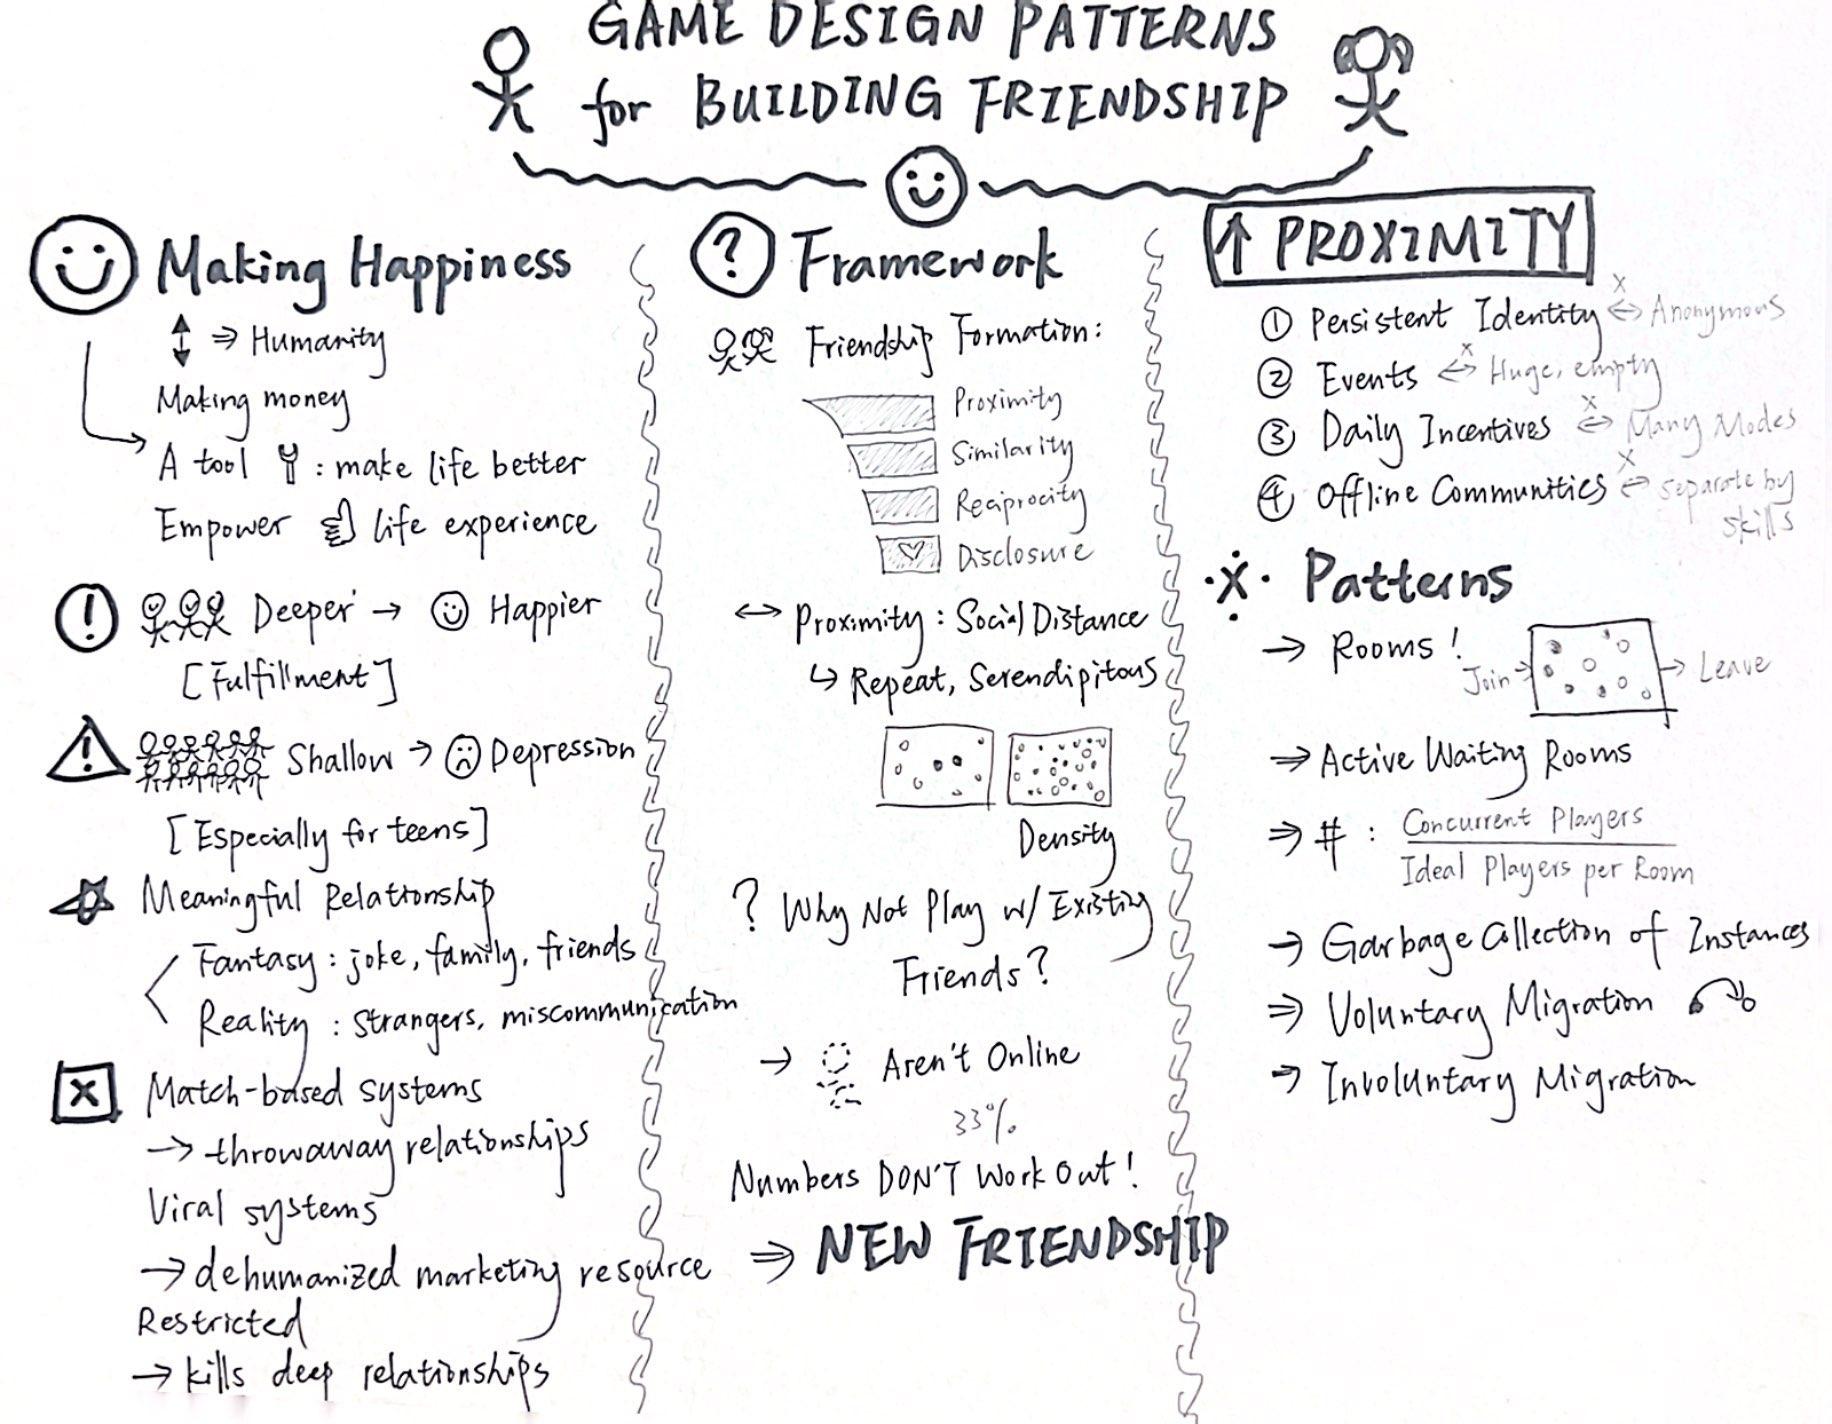 GAME DESIGN PATTERNS
for BUILDING FRIENDSHIP
Making Happiness
⇒ Humanity
Making money
A tool : make life better
Empower life experience
! Deeper → Happier
[Fulfillment]
! Shallow → Depression
[Especially for teens]
Meaningful Relationship
Fantasy : joke, family, friends
Reality : strangers, miscommunication
x Match-based systems
→ throwaway relationships
Viral systems
→ dehumanized marketing resource
Restricted
→ kills deep relationships
? Framework
Friendship Formation:
Proximity
Similarity
Reciprocity
Disclosure
↔ Proximity : Social Distance
↳ Repeat, Serendipitous
Density
? Why Not Play w/ Existing
Friends?
→ Aren't Online
33%
Numbers DON'T Work Out!
⇒ NEW FRIENDSHIP
↑ PROXIMITY
① Persistent Identity x ⇔ Anonymous
② Events x ⇔ Huge, empty
③ Daily Incentives x ⇔ Many Modes
④ Offline Communities x ⇔ separate by
skills
Patterns
→ Rooms!
Join → → Leave
⇒ Active Waiting Rooms
⇒ # : Concurrent Players
Ideal Players per Room
→ Garbage Collection of Instances
⇒ Voluntary Migration
→ Involuntary Migration